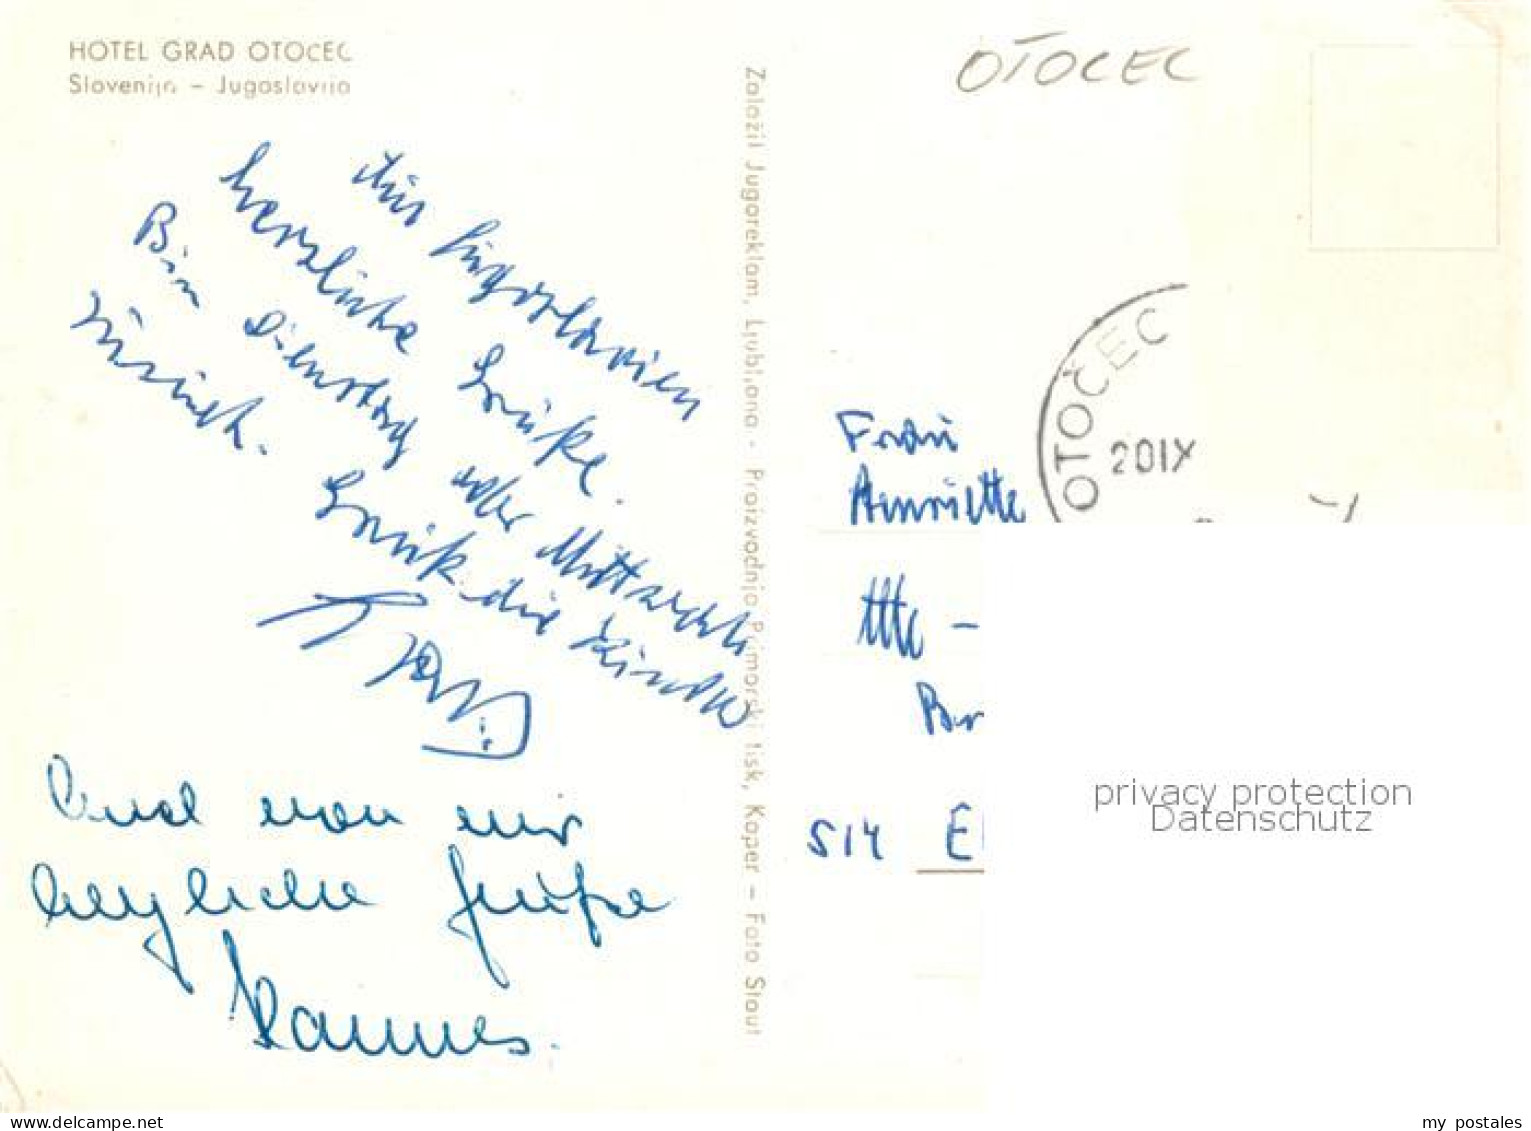 HOTEL GRAD OTOČEC
Slovenija – Jugoslavija
Aus Jugoslavien
herzliche Grüße.
Bin Dienstag oder Mittwoch
zurück. Grüß die Kinder
Und von mir
herzliche Grüße
Hannes.
Založil Jugoreklam, Ljubljana - Proizvodnja Primorski tisk, Koper – Foto Straut
OTOCEC
OTOČEC
20 IX
Frau
Henriette
514 E
privacy protection
Datenschutz
www.delcampe.net
my_postales